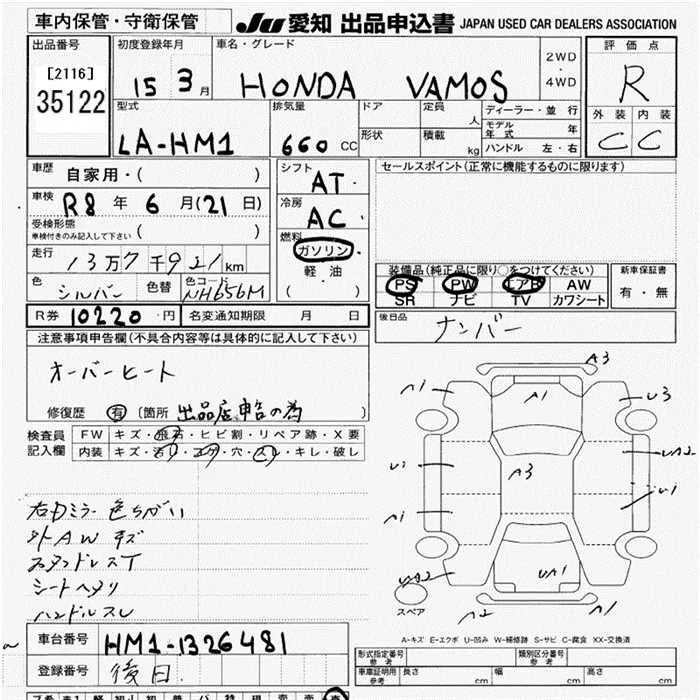 車内保管・守衛保管
JU 愛知 出品申込書 JAPAN USED CAR DEALERS ASSOCIATION
出品番号 初度登録年月 車名・グレード 2WD ・ 4WD 評価点
[2116]
35122
15 3 月 HONDA VAMOS R
型式 排気量 ドア 定員 人 ディーラー・並行 外装 内装
LA-HM1 660 CC 形状 積載 kg モデル年式 年 C C
ハンドル 左・右
車歴 自家用・( ) シフト AT・ セールスポイント(正常に機能するものに限ります)
車検 R8 年 6 月(21 日) 冷房 AC・
受検形態 車検付きのみ記入して下さい ( )
燃料 ガソリン
軽・油
( )
走行 13万7千921km
装備品(純正品に限り○をつけてください) 新車保証書
PS PW エアB AW 有・無
SR ナビ TV カワシート
色 シルバー 色替 色コード NH656M
R券 10220 円 名変通知期限 月 日
後日品 ナンバー
注意事項申告欄(不具合内容等は具体的に記入して下さい)
オーバーヒート
修復歴 有 〔箇所 出品店申告の為 〕
検査員記入欄 FW キズ・飛石・ヒビ割・リペア跡・X要
内装 キズ・汚れ・コゲ・穴・スレ・キレ・破し
右Dミラー色ちがい
外AWキズ
スタッドレスT
シートヘタリ
ハンドルスレ
A3
A1
U3
A3
UA1
A2
スペア
A-キズ E-エクボ U-凹み W-補修跡 S-サビ C-腐食 XX-交換済
車台番号 HM1-1326481
登録番号 後日
型式指定番号 参考 類別区分番号 参考
車庫証明用 参考 長さ cm 幅 cm 高さ cm